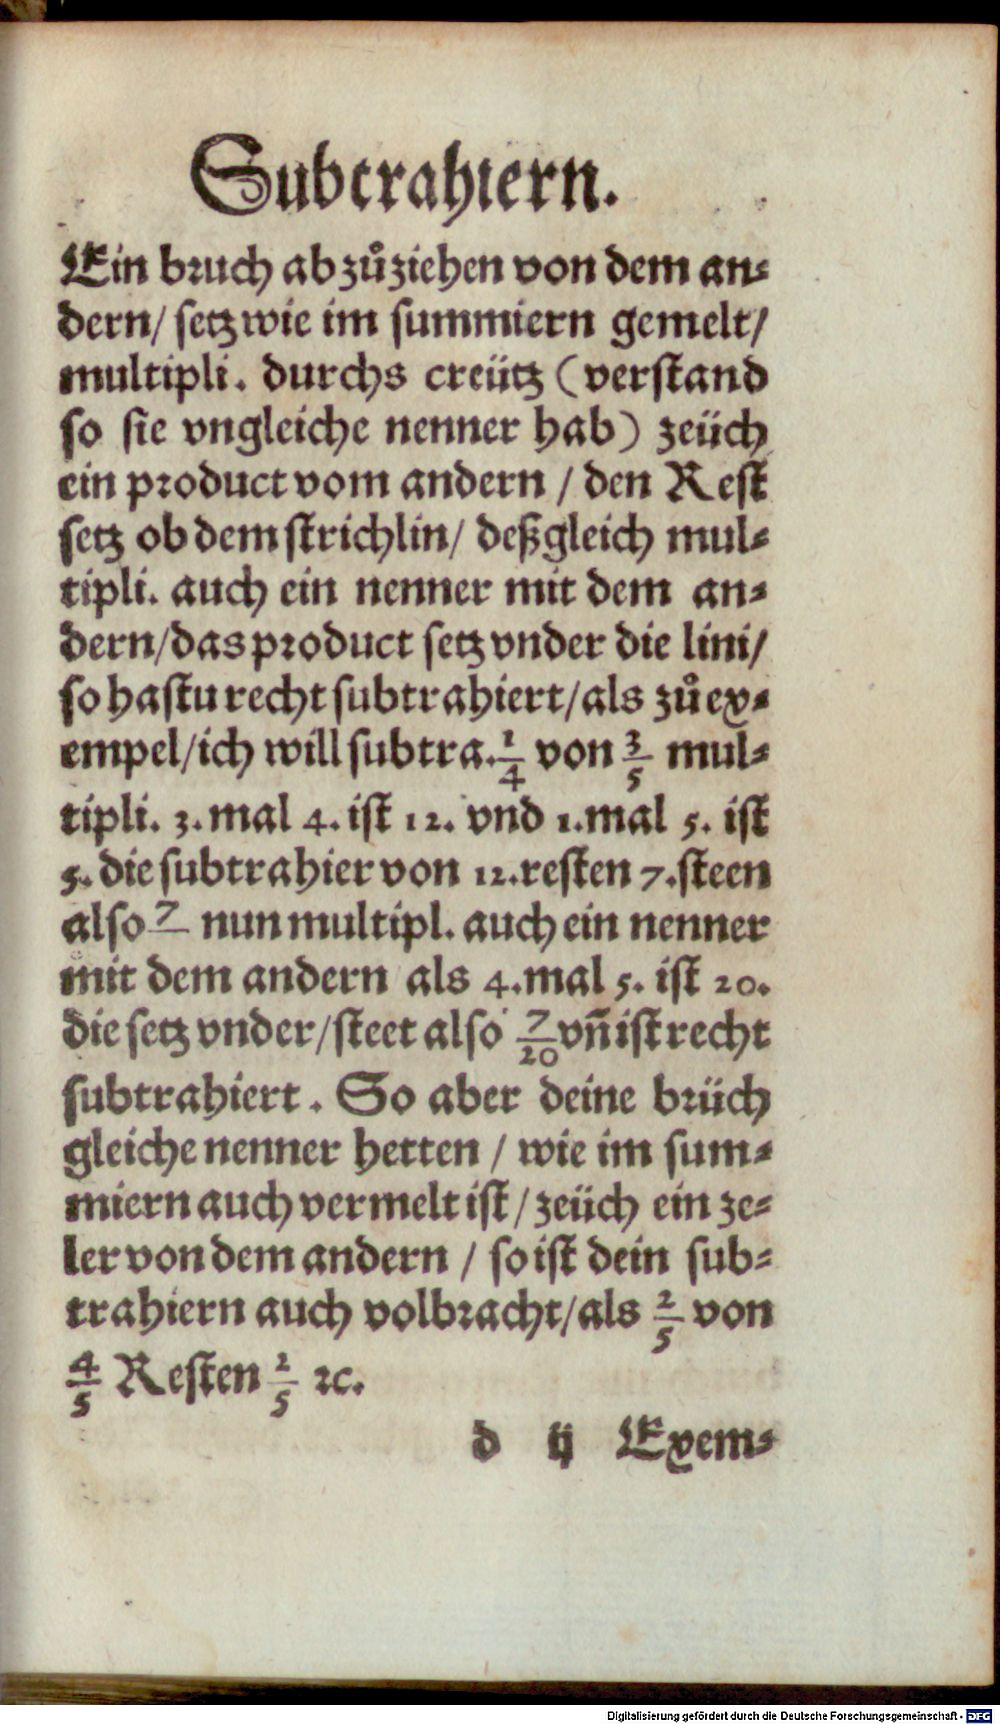 Subtrahiern.
Ein bruch abzůziehen von dem an⸗
dern/ setz wie im summiern gemelt/
multipli. durchs creütz (verstand
so sie vngleiche nenner hab) zeüch
ein product vom andern / den Rest
setz ob dem strichlin/ deßgleich mul⸗
tipli. auch ein nenner mit dem an⸗
dern/das product setz vnder die lini/
so hastu recht subtrahiert/als zů ex⸗
empel/ich will subtra. 1/4 von 3/5 mul⸗
tipli. 3. mal 4. ist 12. vnd 1.mal 5. ist
5. die subtrahier von 12.resten 7.steen
also 7/ nun multipl. auch ein nenner
mit dem andern als 4.mal 5. ist 20.
die setz vnder/steet also 7/20 vñ ist recht
subtrahiert. So aber deine brüch
gleiche nenner hetten / wie im sum⸗
miern auch vermelt ist/zeüch ein ze⸗
ler von dem andern / so ist dein sub⸗
trahiern auch volbracht/als 2/5 von
4/5 Resten 2/5 ꝛc.
d ij Exem⸗
Digitalisierung gefördert durch die Deutsche Forschungsgemeinschaft - DFG